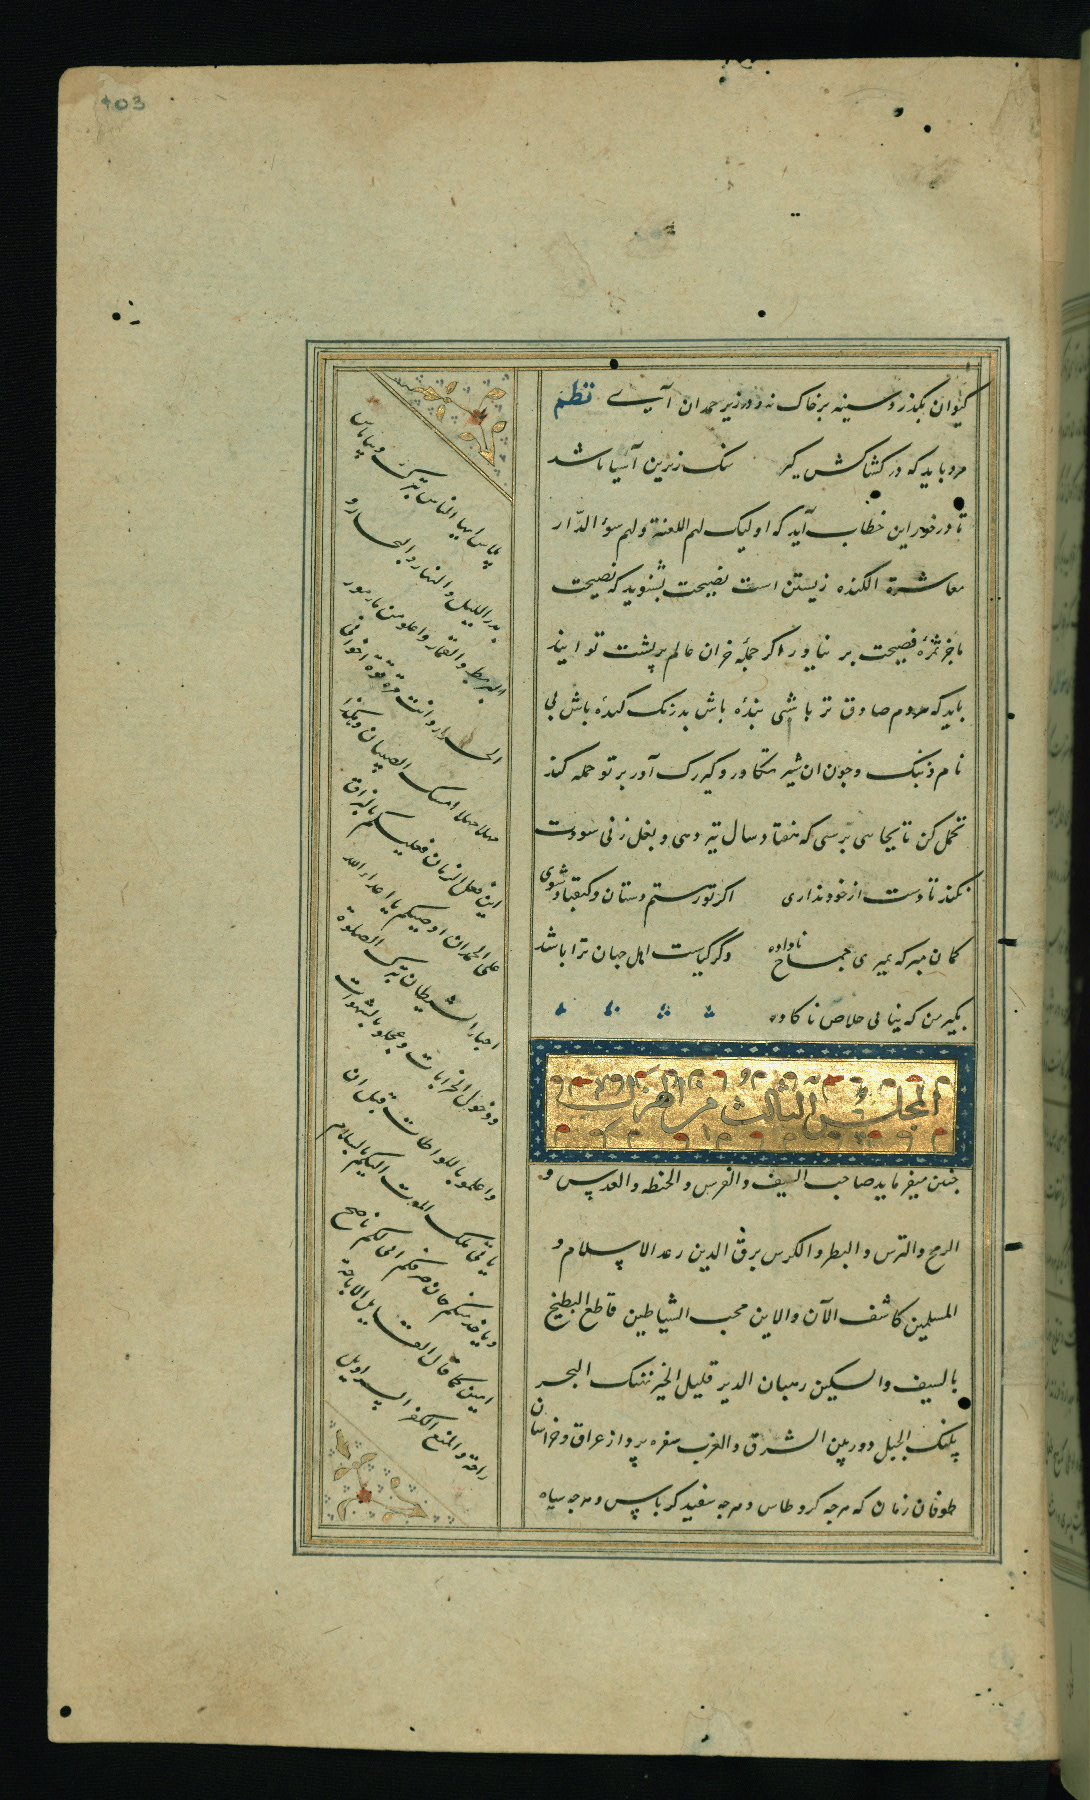 103
کیوان بگذرد و سینه بر خاک نه و در زیر حمدان آی نظم
مرد باید که در کشاکش کیر سنک زیرین آسیا باشد
تا در خور این خطاب آید که اولیک لهم اللعنة ولهم سوٴ الدّار
معاشرة الکنده زیستن است نصیحت بشنوید که نصیحت
ما جز ثمرهٔ فصیحت بر نیاورد اکر جملهٔ خران عالم بر پشت تو ایند
باید که مردم صادق تر باشی بندهٔ باش بد رنک کندهٔ باش بی
نام و ننک و چون ان شیر متکاور و کیر رک آور بر تو حمله کند
تحمل کن تا بجا‌سی برسی که هفتاد سال تیر دهی و بغل زنی سودت
نکند تا دست از خود نداری اکر تو رستم دستان و کیقباد شوی
کمان مبر که بمیری جماع ناداده و کر کیاست اهل جهان ترا باشد
بکیر من که نیابی خلاص ناکاده
المجلس الثالث من الهزل
چنین میفرماید صاحب السیف والفرس والحنطه والعدس و
الرمح والترس والبطر والکرس برق الدین رعد الاسلام و
المسلمین کاشف الآن والاین محب الشیاطین قاطع البطیخ
بالسیف والسکین رهبان الدیر قلیل الخیر نهنک البحر
پلنک الجبل دوربین الشرق والغرب سفره پرداز عراق و خراسان
طوفان زمان که هر چه کرد طاس و هر چه سفید کرباس و هر چه سیاه
پلاس ایها الناس بترک وسپاس
بدر اللیل والنهار والبحار و
البر بط والقفار واعلمو من مار مور
الحمار وانت قرة قوة اخوانی
مهلا مهلا امسک الصبیان وبکذا
این فعل الزمان فعلیکم بالنزاق
علی الحمدان اوصیکم یا اعداء الله
احبار الشیطان بترک الصلوة
ودخول الخرابات وعجلو بالشهوات
واعلمو بالکواطات قبل ان
یاتی ملک الموت الیکم بالسلام
ویاخذ منکم جان حرفکم انی لکم ناصح
امین کما قال القایل الاباحة
راحة والمنع الکفر السراویل